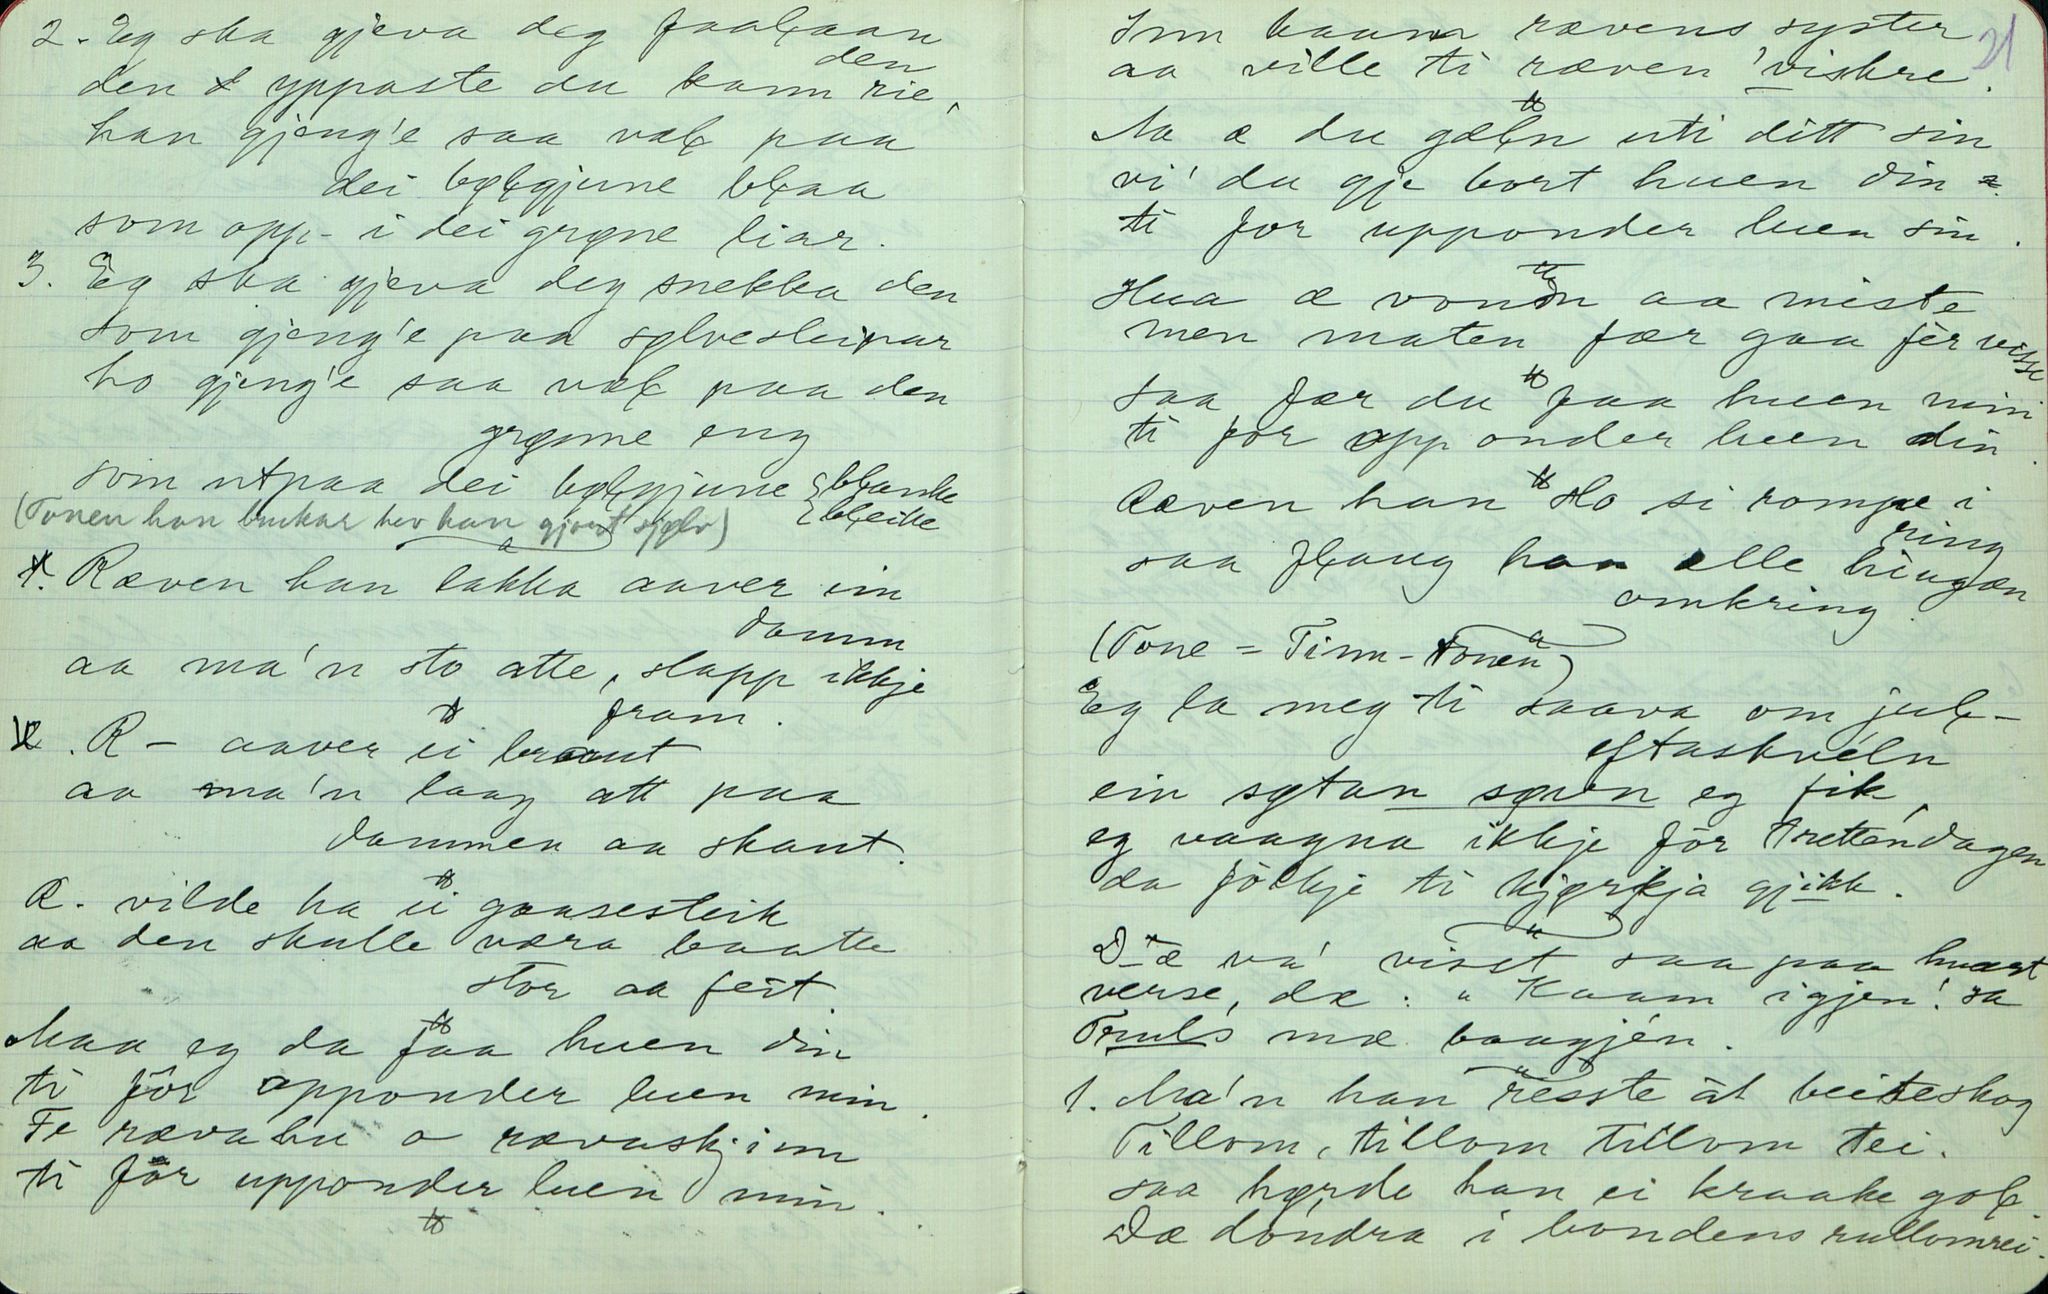 2. Eg ska gjeva deg faalaan
den
den yppaste du kann rie,
han gjeng'e saa val paa
dei bølgjune blaa
som opp- i dei grøne liar.
3. Eg ska gjeva deg snekka den
som gjeng'e paa sølvesleipar
ho gjeng'e saa val paa den
grøne eng
som utpaa dei bølgjune { blanke
(Tonen han brukar hev han gjort sjølv) { bleike
Ræven han lakka aaver ein
damm
aa ma'n sto atte, slapp ikkje
fram.
R - aaver ei braut
aa ma'n laag att paa
dammen aa skaut.
R. vilde ha ei gaasesteik
aa den skulle væra baate
stor aa feit
Maa eg da faa huen din
ti fór opponder luen min.
Fe rævahu o rævaskjinn
ti fór upponder luen min.
21
Inn kaam rævens syster
aa ville ti ræven 'viskre.
Na æ du gæln uti ditt sin
vi' du gje bort huen din
ti for upponder luen sin.
Hua æ vond aa miste
men maten fær gaa fèr visse
saa fær du faa huen min
ti for opp onder luen din.
Ræven han slo si rompe i
ring
saa flaug han alle hingæn
omkring
(Tone = Tinn-Tonen)
Eg la meg ti saava om jul-
eftaskveln
ein søtan søven eg fik,
eg vaagna ikkje för Trettendagen
da fölkje ti kjørkja gjikk.
D æ va' viset saa paa hvert
verse, dæ: " Kaam igjen! sa
Truls mæ baagjén.
1. Ma'n han resste át beiteskog
Tillom, tillom tillom tei.
saa hørde han ei kraake gol
Dæ dóndra i bondens rullomrei.